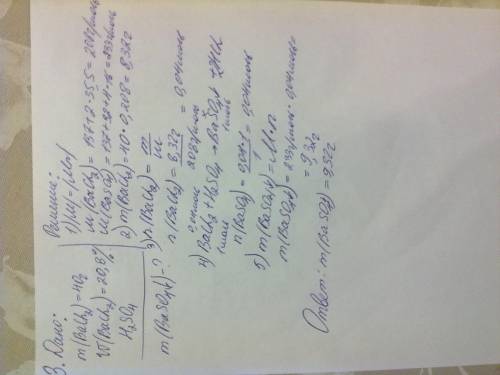 3. Дано:
m(BaCl₂)=40г
w(BaCl₂)=20,8%
H₂SO₄
m(BaSO₄↓)-?
Решение:
1) |M|=|Mr|
M(BaCl₂)=137+2·35,5=208г/моль
M(BaSO₄)=137+32+4·16=233г/моль
2) m(BaCl₂)=40·0,208=8,32г
3) n(BaCl₂)=m/M
n(BaCl₂)=8,32г/208г/моль=0,04моль
0,04моль
4) BaCl₂+H₂SO₄→BaSO₄↓+2HCl
1моль 1моль
n(BaSO₄)=0,04·1/1=0,04моль
5) m(BaSO₄↓)=M·n
m(BaSO₄↓)=233г/моль·0,04моль=
=9,32г
Ответ: m(BaSO₄)=9,32г